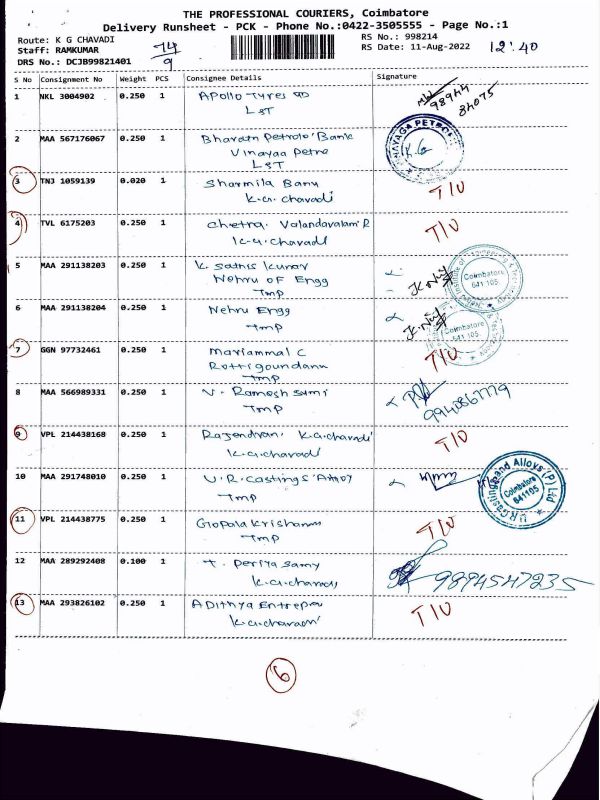 THE PROFESSIONAL COURIERS, Coimbatore
Delivery Runsheet - PCK - Phone No.:0422-3505555 - Page No.:1
Route: K G CHAVADI
Staff: RAMKUMAR
DRS No.: DCJB99821401
74
9
RS No.: 998214
RS Date: 11-Aug-2022
12:40
S No Consignment No Weight PCS Consignee Details Signature
1 NKL 3004902 0.250 1 Apollo Tyres
L&T
98944
84075
2 MAA 567176067 0.250 1 Bharath Petrole Bank
Vinayaa Petro
L&T
3 TNJ 1059139 0.020 1 Sharmila Banu
K.G.chavadi
T/U
4 TVL 6175203 0.250 1 chetra. Valandavalam R
K.G.chavadi
T/U
5 MAA 291138203 0.250 1 K. Sathis Kumar
Nehru OF Engg
Tmp
Coimbatore
641 105.
6 MAA 291138204 0.250 1 Nehru Engg
Tmp
Coimbatore
641 105.
7 GGN 97732461 0.250 1 Mariammal C
Rottigoundanu
Tmp
T/U
8 MAA 566989331 0.250 1 V. Ramesh Sami
Tmp
9940867779
9 VPL 214438168 0.250 1 Rajendran. K.G.chavadi
K.G.chavadi
T/U
10 MAA 291748010 0.250 1 U.R.Castings Alloy
Tmp
U.R.Castings and Alloys (P) Ltd
Coimbatore
641105
11 VPL 214438775 0.250 1 Gopala Krishnan
Tmp
T/U
12 MAA 289292408 0.100 1 T. Periya Samy
K.G.chavadi
9894547235
13 MAA 293826102 0.250 1 ADithya Entrepri
K.G.chavadi
T/U
6